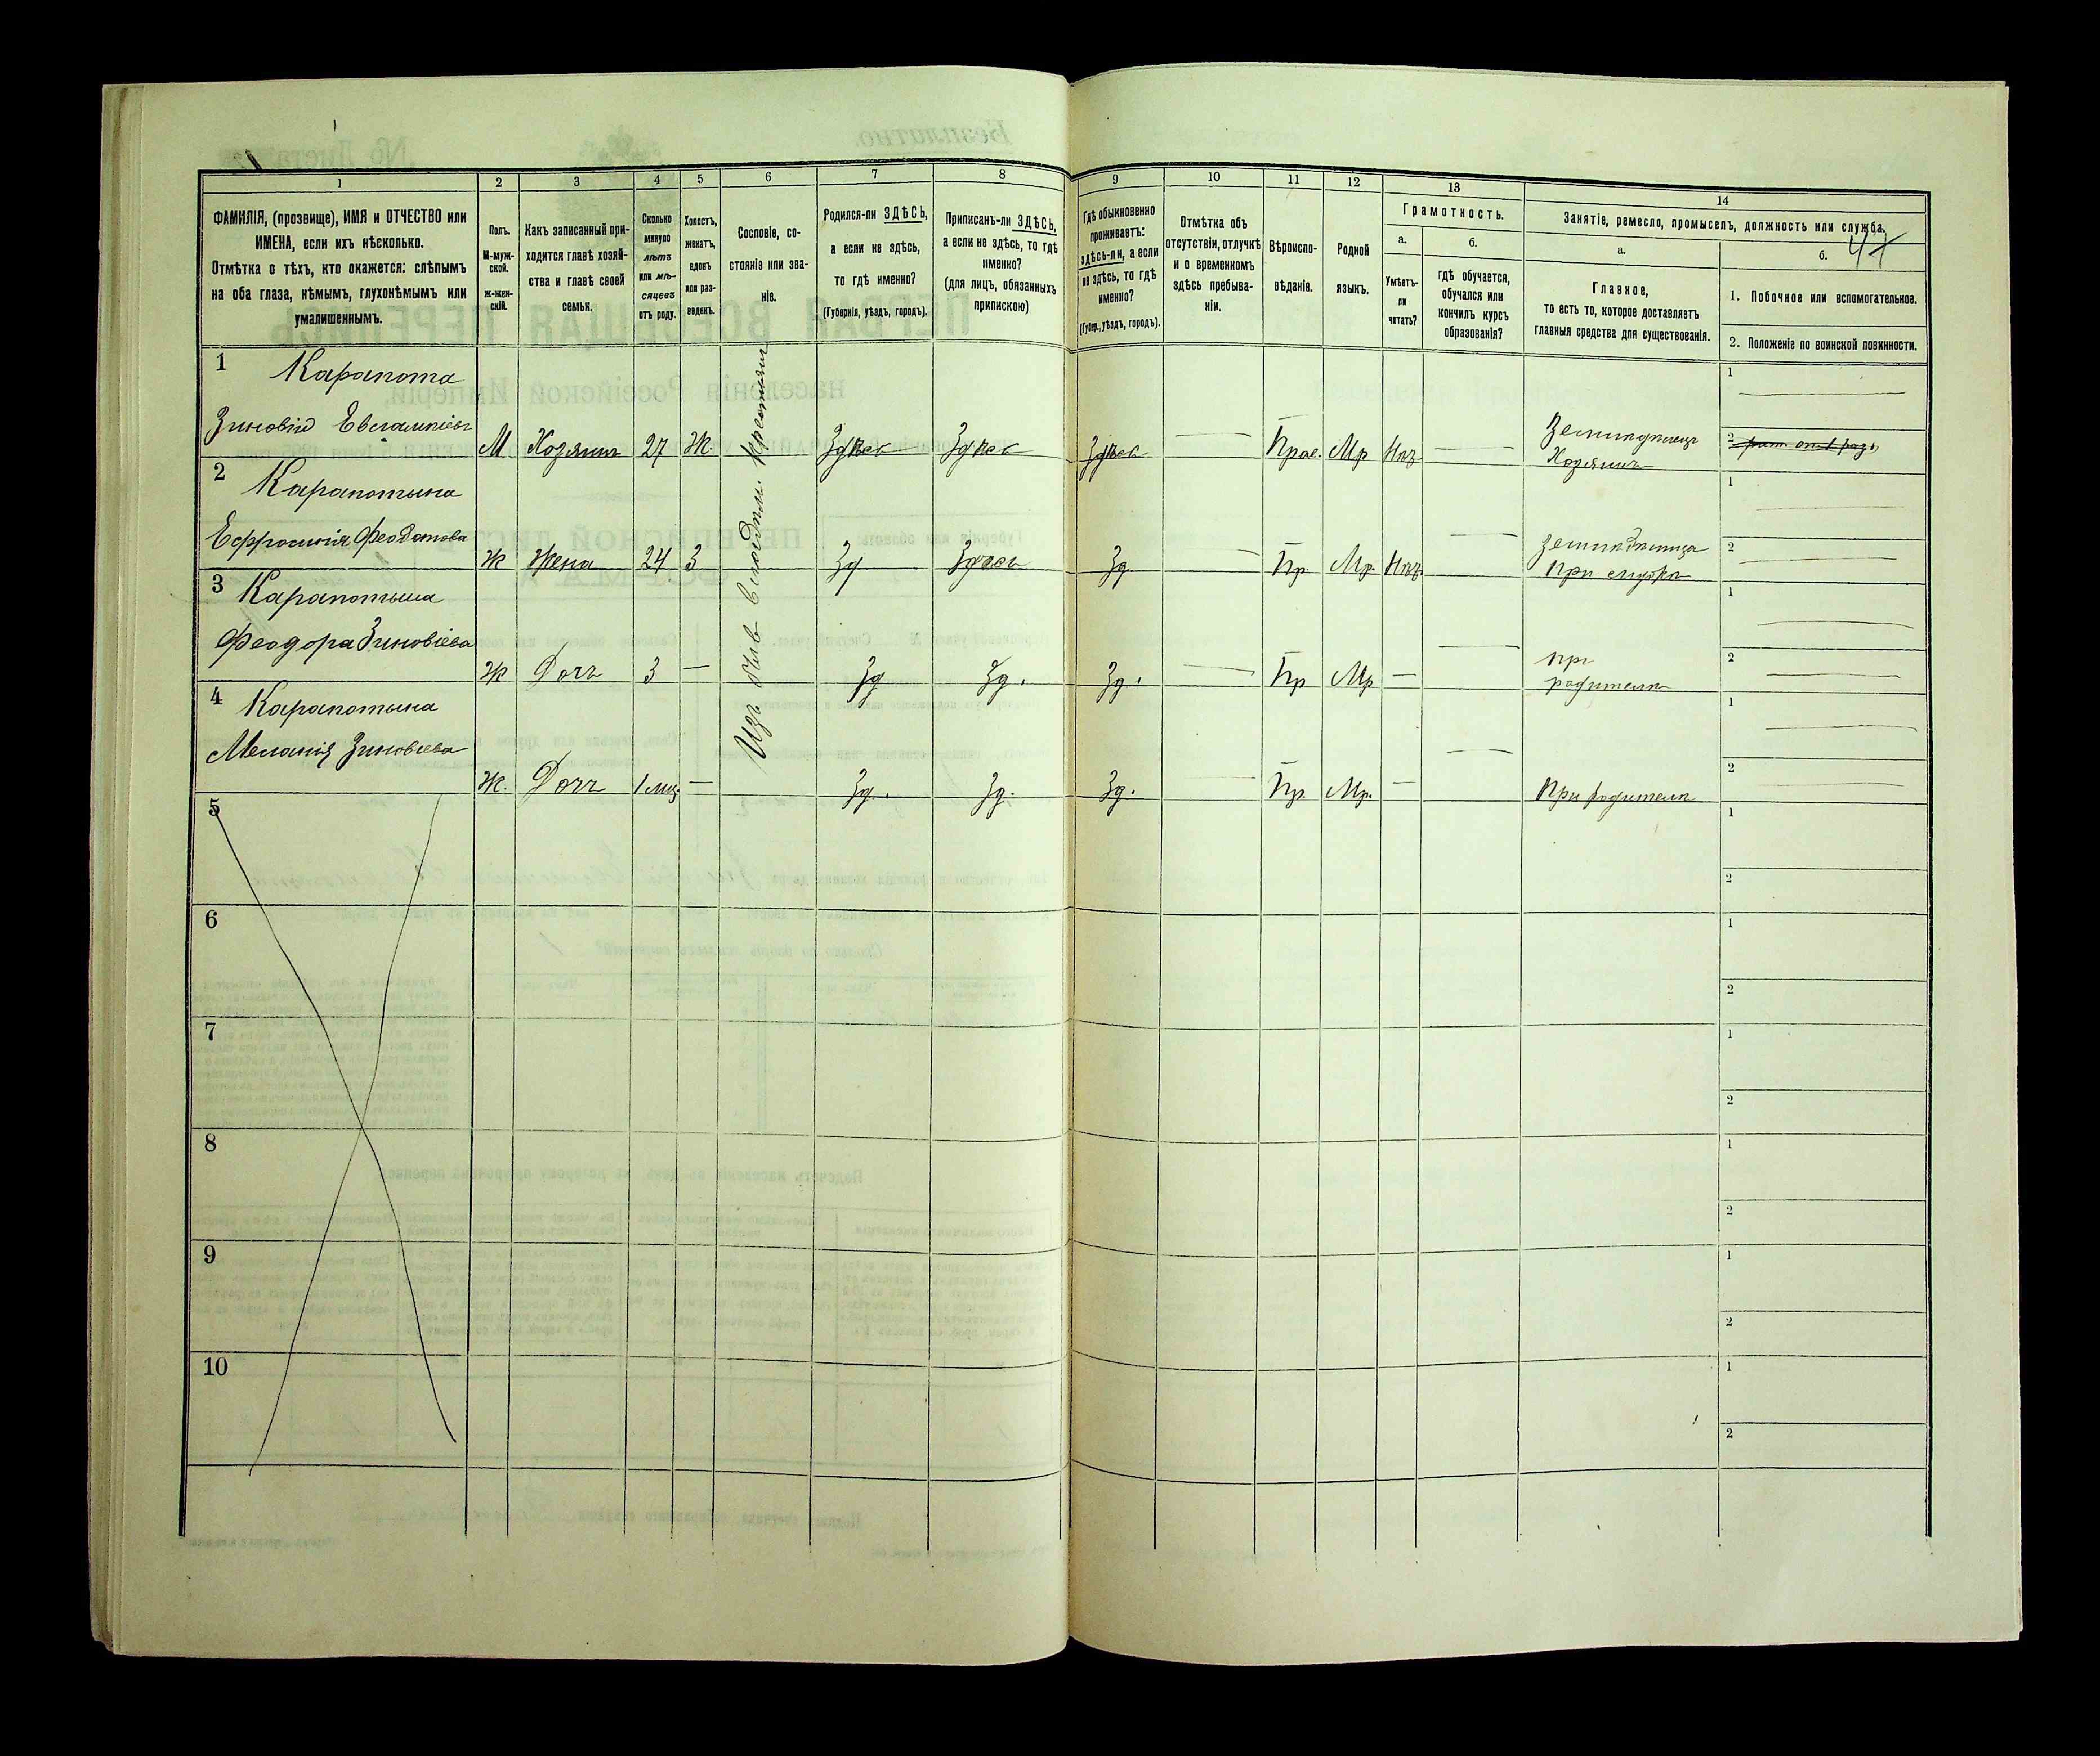 1
2
3
4
5
6
7
8
9
10
11
12
13
14
ФАМИЛІЯ, (прозвище), ИМЯ и ОТЧЕСТВО или
ИМЕНА, если ихъ нѣсколько.
Отмѣтка о тѣхъ, кто окажется: слѣпымъ
на оба глаза, нѣмымъ, глухонѣмымъ или
умалишеннымъ.
Полъ.
М-муж-
ской.
ж-жен-
скій.
Какъ записанный при-
ходится главѣ хозяй-
ства и главѣ своей
семьи.
Сколько
минуло
лѣтъ
или мѣ-
сяцевъ
отъ роду.
Холостъ,
женатъ,
вдовъ
или раз-
веденъ.
Сословіе, со-
стояніе или зва-
ніе.
Родился-ли ЗДѢСЬ,
а если не здѣсь,
то гдѣ именно?
(Губернія, уѣздъ, городъ).
Приписанъ-ли ЗДѢСЬ,
а если не здѣсь, то гдѣ
именно?
(для лицъ, обязанныхъ
припискою)
Гдѣ обыкновенно
проживаетъ:
здѣсь-ли, а если
не здѣсь, то гдѣ
именно?
(Губер., уѣздъ, городъ).
Отмѣтка объ
отсутствіи, отлучкѣ
и о временномъ
здѣсь пребыва-
ніи.
Вѣроиспо-
вѣданіе.
Родной
языкъ.
Грамотность.
а.
б.
Умѣетъ-
ли
читать?
гдѣ обучается,
обучался или
кончилъ курсъ
образованія?
Занятіе, ремесло, промыселъ, должность или служба.
47
а.
б.
Главное,
то есть то, которое доставляетъ
главныя средства для существованія.
1. Побочное или вспомогательное.
2. Положеніе по воинской повинности.
1 Карапота
Зиновій Евлампіевъ М Хозяинъ 27 Ж. Здѣсь Здѣсь Здѣсь — Прав. Мр Нѣт —
Земледѣлецъ
Хозяинъ
1
2
Изъ быв владѣл. крестьян
2 Карапотына
Ефросинія Феодотова Ж Жена 24 З Зд Здѣсь Зд — Пр. Мр. Нѣт —
Земледѣлица
при мужѣ
1
2
3 Карапотына
Феодора Зиновіева Ж Дочь 3 — Зд Зд. Зд. — Пр Мр — —
при
родителѣ
1
2
4 Карапотына
Меланія Зиновіева Ж. Дочь 1 мѣс. — Зд. Зд. Зд. — Пр. Мр. — —
При родителѣ
1
2
5
1
2
6
1
2
7
1
2
8
1
2
9
1
2
10
1
2